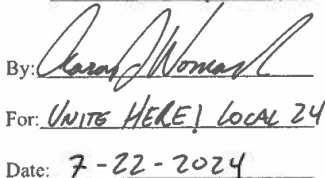 By:
For: UNITE HERE! LOCAL 24
Date: 7-22-2024